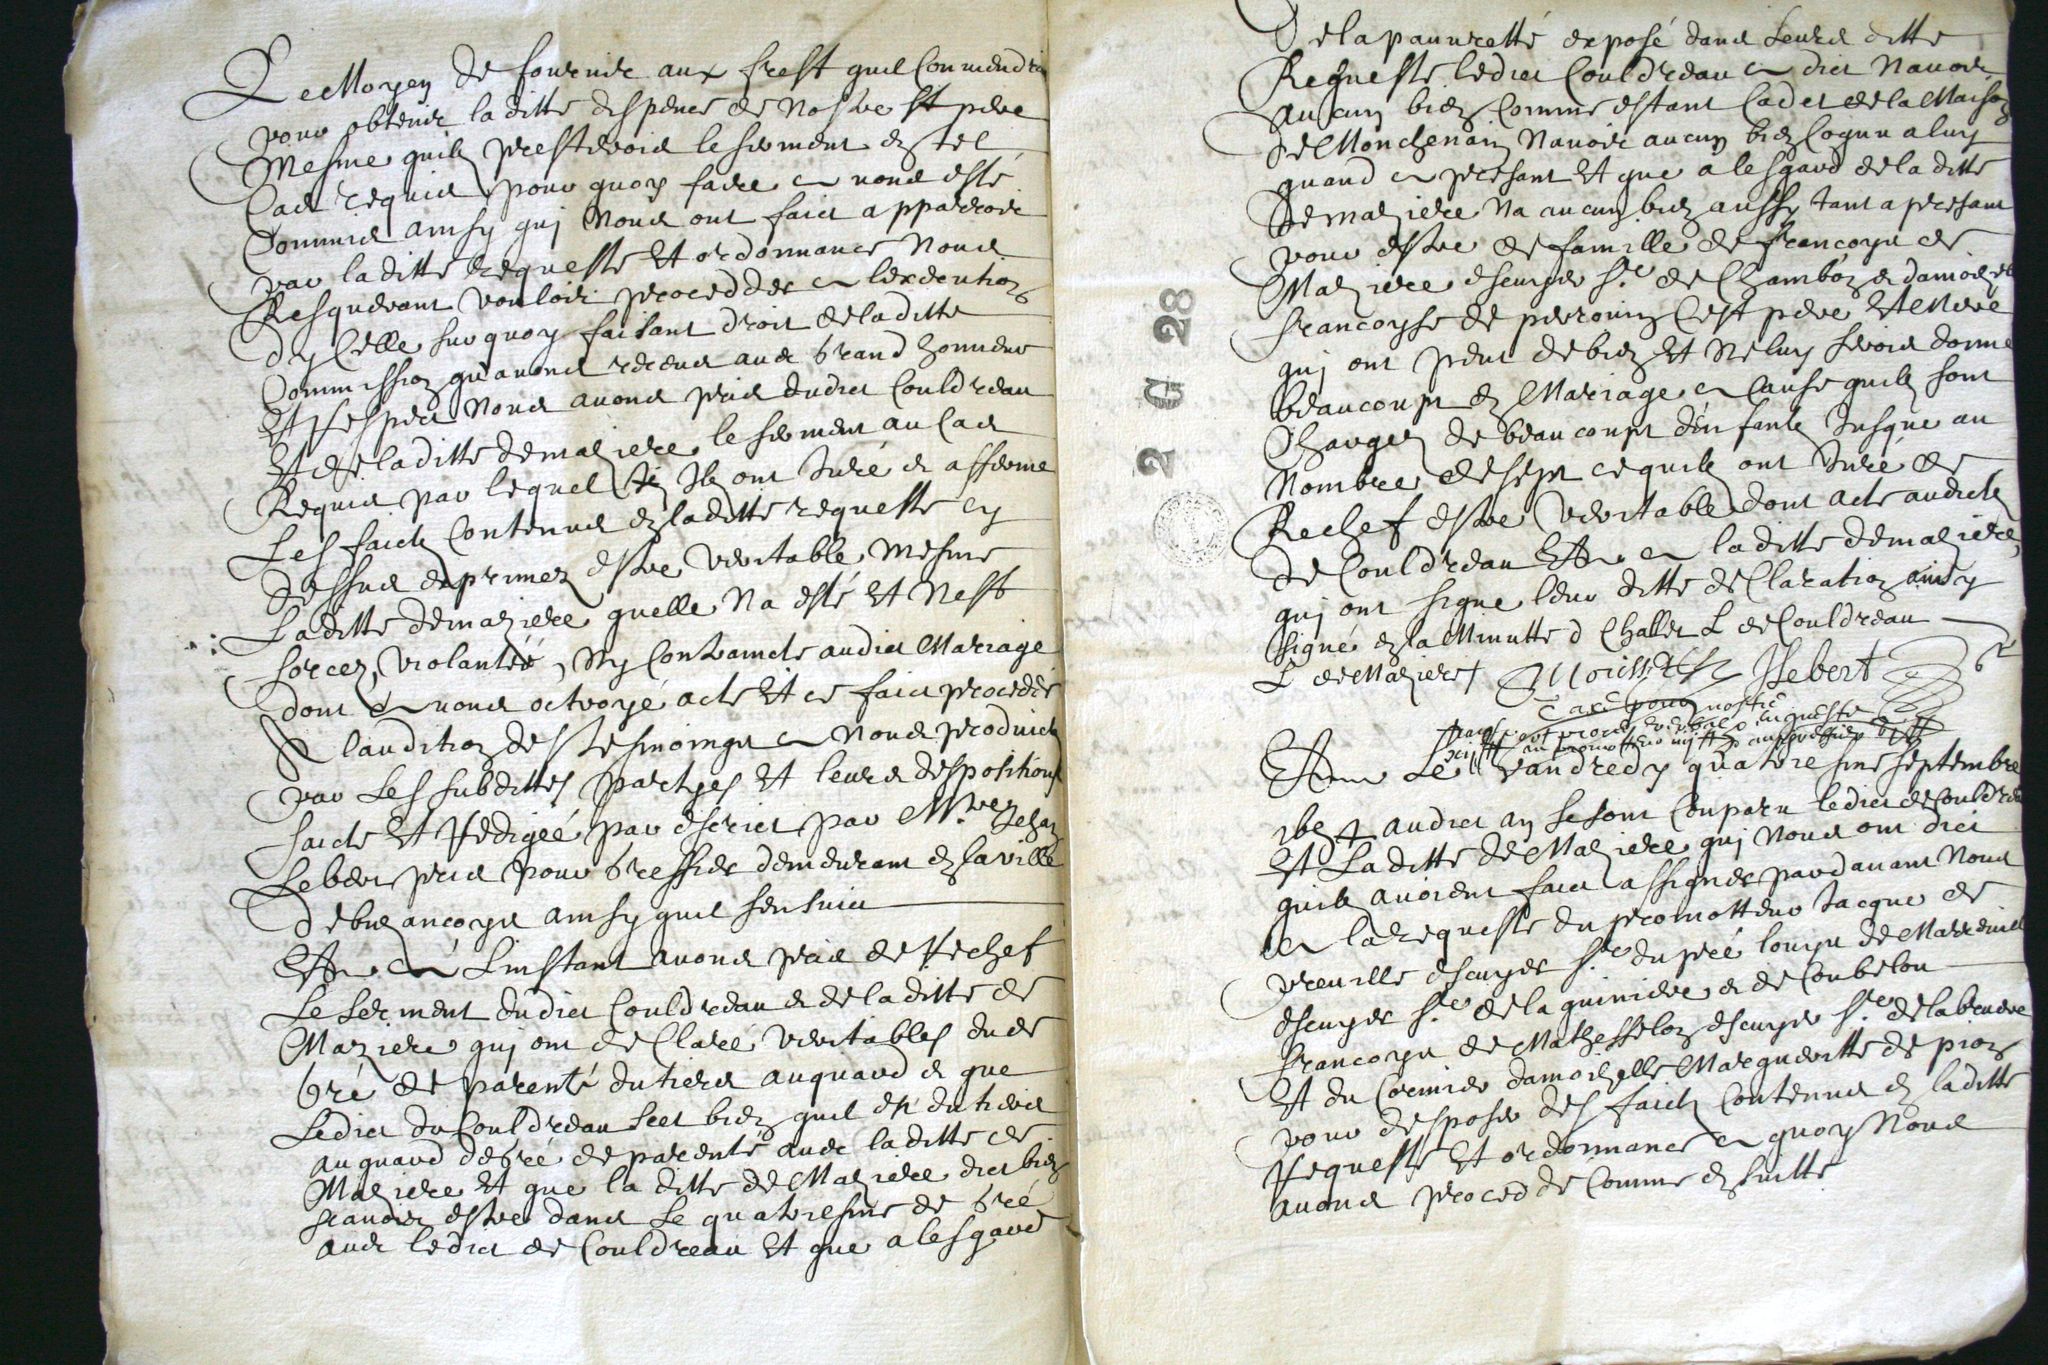 Le Moyen de fournir aux frest quil conviendra
pour obtenir laditte dispence de Nostre st pere
Mesme quilz presteroie le serment en tel
Cas requis pour quoy faire a nous esté
Commis ainsy qui Nous ont faict apparroir
par laditte requeste Et ordonnance Nous
Resquerant vouloir procedder a lexecution
dycelle sur quoy faisant droit de laditte
Commission quavons receue avec grand honneur
Et respect Nous avons pris dudict Couldreau
Et de laditte demaziere le serment au Cas
Requis par lequel Ilz ont Juré et afferme
Les faictz Contenus en laditte requeste cy
dessus exprimez estre veritable Mesme
Laditte demaziere quelle Na esté Et Nest
forcez, violantée, Ny Contraincte audict Mariage
dont a nous octroyé acte Et ce faict procedde
A laudition des tesmoings a Nous produictz
par Les subdittes partyes Et leurs despositions
faicte Et Redigée par escrict par Me Jehan
Leber pris pour Greffier demeurant en la ville
de buzancoys ainsy quil sensuict
Et a Linstant avons pris de Rechef
Le serment dudict Couldreau et de laditte de
Maziere qui ont declaré veritables du de
gré de parenté du tiers au quard et que
Ledict du Couldreau scet bien quil est du tiers
au quard degré de parenté avec laditte de
Maziere Et que la ditte de Maziere dict bien
scavoir estre dans Le quatriesme degré
avec ledict de Couldreau Et que a lesgard
De la pauvretté exposé dans leurs ditte
Requeste ledict Couldreau a dict Navoir
aucun bien Comme estant Cadet de la Maison
de Monchenain Navoir aucun bien Cognu a luy
quand a presant Et que a lesgard de laditte
demaziere Na aucun bien aussy tant a presant
pour estre de famille de francoys de
Maziere escuyer Sr. de Chambon et damoizelle
francoyse de perronin Cest pere Et Mere
qui ont peut de bien Et Ne luy feroie donne
beaucoupt en Mariage a Cause quilz sont
Chargez de beaucoupt d'enfantz Jusque au
Nombre de sept ce quilz ont Juré de
Rechef estre veritable dont acte audictz
de Couldreau Et a laditte demaziere
qui ont signe leur ditte declaration ainsy
signé en la Minutte d Challes L de Couldreau
L de Maziere
Hebert
Taxé pour nostre
Et Le Vandredy quatoresme septembre
audict an se sont Comparu ledict de Couldreau
Et Laditte de Maziere qui Nous ont dict
quilz avoient faict assigner pardavant Nous
a la requeste du promotteur Jacque de
preuille escuyer Sr. du pré louys de Marreuil
escuyer Sr. de la guiniere et de Coubelou
francoys de Mathesselon escuyer Sr. de la beuvre
Et du Cormier damoizelle Marguerritte de pion
pour desposer des faictz Contenus en laditte
Requeste Et ordonnance a quoy Nous
avons procedde Comme ensuitte
2 G 28